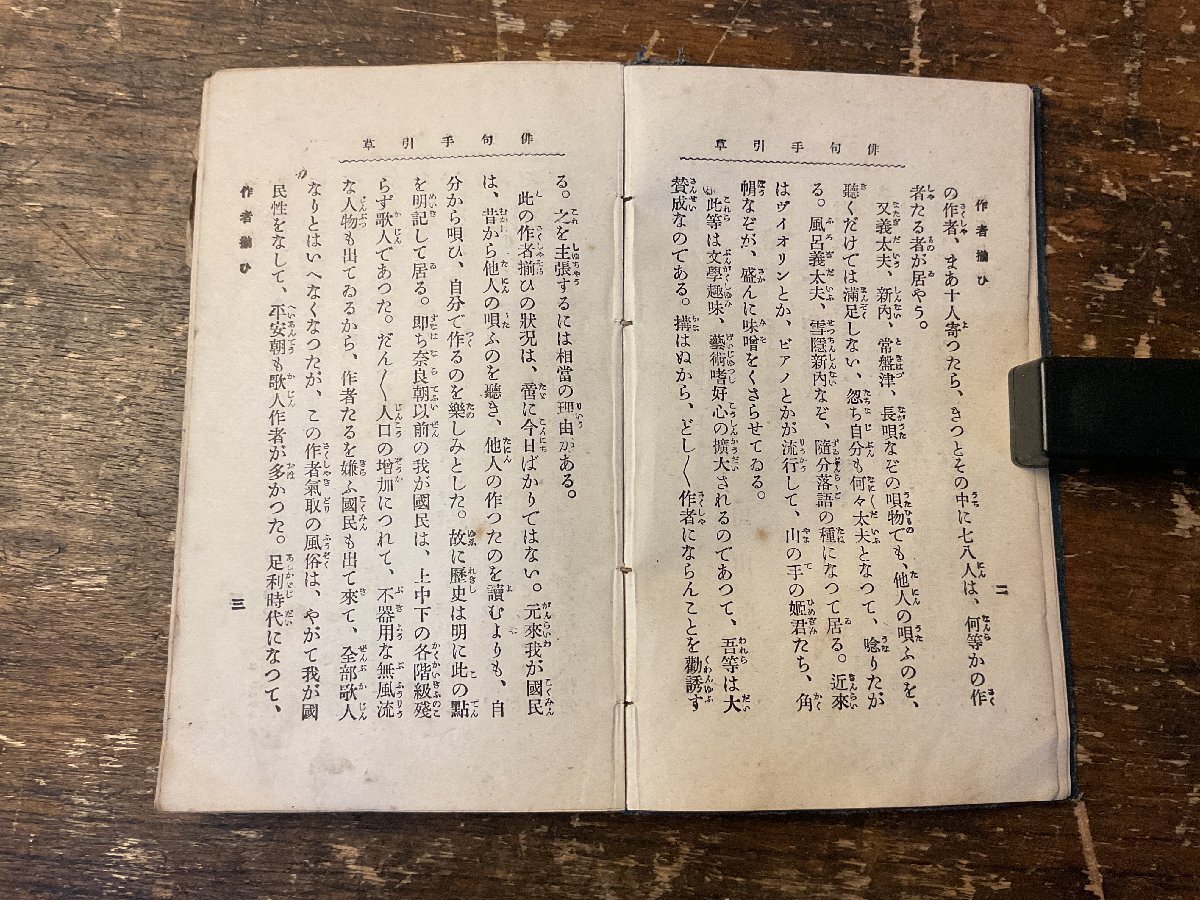 作者揃ひ
二
俳句手引草
の作者、まあ十人寄つたら、きつとその中に七八人は、何等かの作
者たる者が居やう。
又義太夫、新內、常盤津、長唄なぞの唄物でも、他人の唄ふのを、
聽くだけでは滿足しない、忽ち自分も何々太夫となつて、唸りたが
る。風呂義太夫、雪隱新內なぞ、隨分落語の種になつて居る。近來
はヴイオリンとか、ピアノとかが流行して、山の手の姬君たち、角
帽なぞが、盛んに味噌をくさらせてゐる。
此等は文學趣味、藝術嗜好心の擴大されるのであつて、吾等は大
贊成なのである。搆はぬから、どし〱作者にならんことを勸誘す
俳句手引草
る。之を主張するには相當の理由がある。
此の作者揃ひの狀況は、啻に今日ばかりではない。元來我が國民
は、昔から他人の唄ふのを聽き、他人の作つたのを讀むよりも、自
分から唄ひ、自分で作るのを樂しみとした。故に歷史は明に此の點
を明記して居る。卽ち奈良朝以前の我が國民は、上中下の各階級殘
らず歌人であつた。だん〱人口の增加につれて、不器用な無風流
な人物も出てゐるから、作者たるを嫌ふ國民も出て來て、全部歌人
なりとはいへなくなつたが、この作者氣取の風俗は、やがて我が國
民性をなして、平安朝も歌人作者が多かつた。足利時代になつて、
作者揃ひ
三